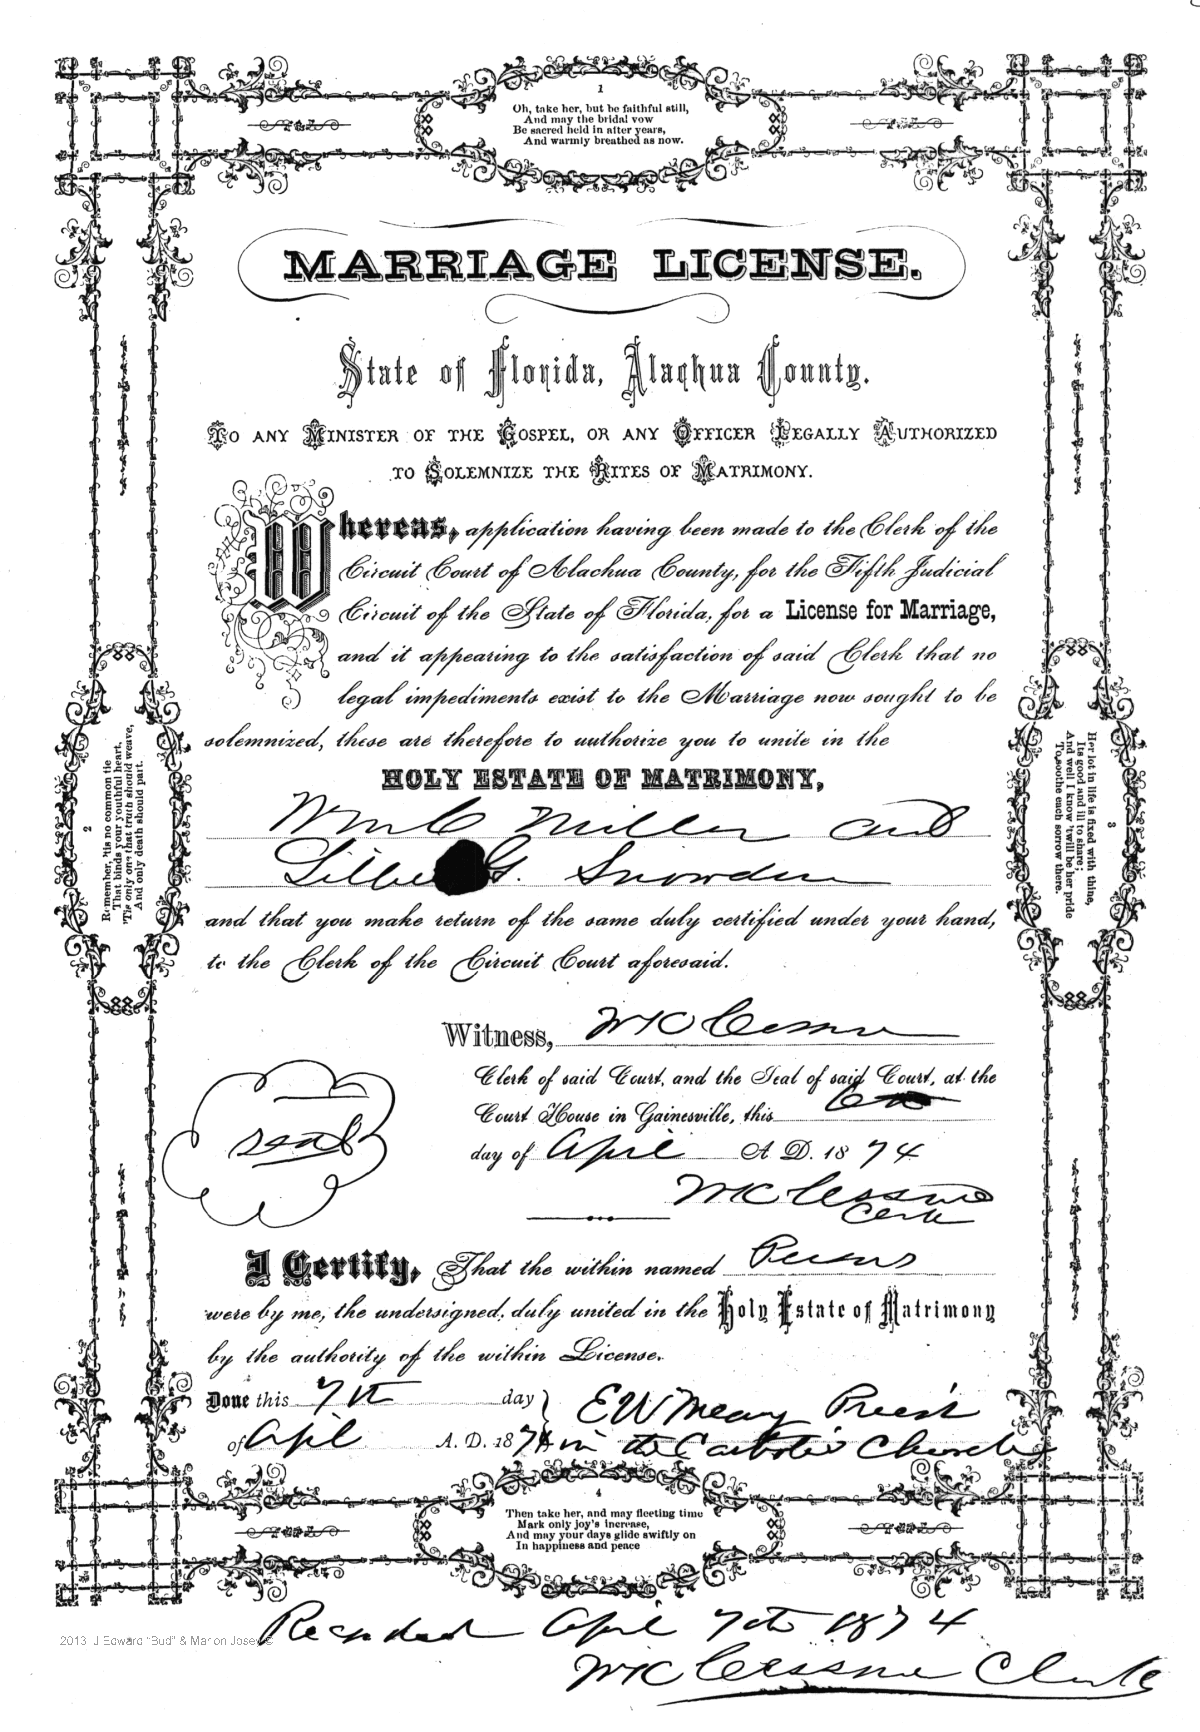 1
Oh, take her, but be faithful still,
And may the bridal vow
Be sacred held in after years,
And warmly breathed as now.
MARRIAGE LICENSE.
State of Florida, Alachua County.
TO ANY MINISTER OF THE GOSPEL, OR ANY OFFICER LEGALLY AUTHORIZED
TO SOLEMNIZE THE RITES OF MATRIMONY.
Whereas, application having been made to the Clerk of the
Circuit Court of Alachua County, for the Fifth Judicial
Circuit of the State of Florida, for a License for Marriage,
and it appearing to the satisfaction of said Clerk that no
legal impediments exist to the Marriage now sought to be
solemnized, these are therefore to authorize you to unite in the
HOLY ESTATE OF MATRIMONY,
Wm C Miller and
G. Snowden
and that you make return of the same duly certified under your hand,
to the Clerk of the Circuit Court aforesaid.
2
Remember, 'tis no common tie
That binds your youthful heart,
'Tis one that only truth should weave,
And only death should part.
3
Her lot in life is fixed with thine,
Its good and ill to share;
And well I know 'twill be her pride
To soothe each sorrow there.
Witness, W K Cessna
Clerk of said Court, and the Seal of said Court, at the
Court House in Gainesville, this
day of April A. D. 1874
seal
W K Cessna
Clerk
I Certify, That the within named Persons
were by me, the undersigned, duly united in the Holy Estate of Matrimony
by the authority of the within License.
Done this 7th day
of April A. D. 1874
Priest
in the Catholic Church
4
Then take her, and may fleeting time
Mark only joy's increase,
And may your days glide swiftly on
In happiness and peace
Recorded April 7th 1874
W K Cessna Clerk
2013 J Edward "Bud" & Marion Josey ©